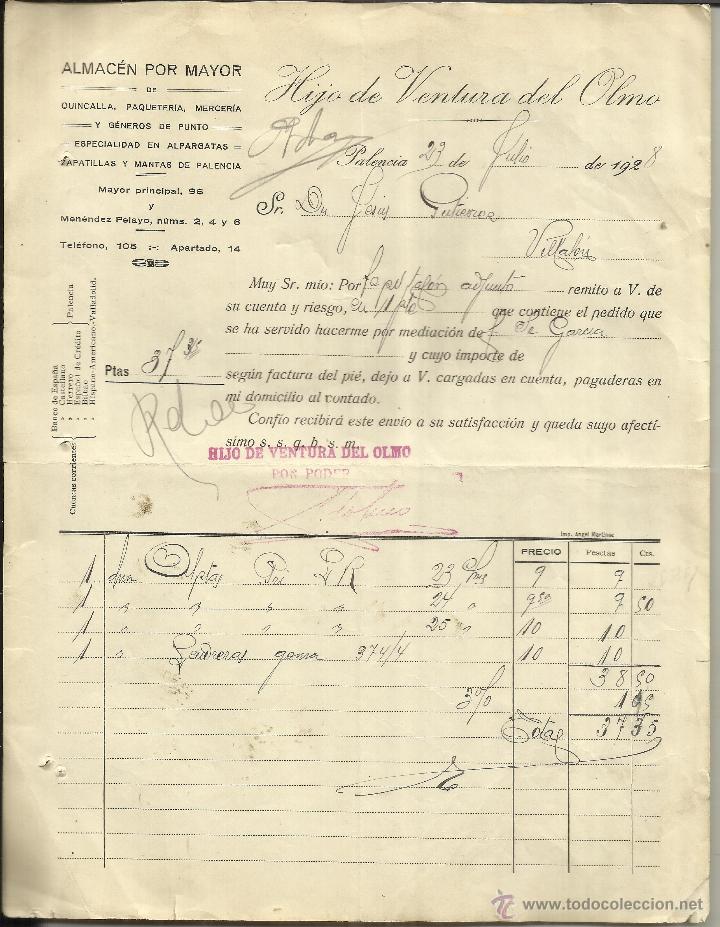 ALMACÉN POR MAYOR
DE
QUINCALLA, PAQUETERÍA, MERCERÍA
Y GÉNEROS DE PUNTO
ESPECIALIDAD EN ALPARGATAS
ZAPATILLAS Y MANTAS DE PALENCIA
Mayor principal, 96
y
Menéndez Pelayo, núms. 2, 4 y 6
Teléfono, 105 :-: Apartado, 14
Hijo de Ventura del Olmo
Palencia 23 de Julio de 1928
Sr. Dn Jesús Gutierrez
Villalón
Muy Sr. mio: Por adjunto remito a V. de
su cuenta y riesgo, que contiene el pedido que
se ha servido hacerme por mediación de Garcia
y cuyo importe de
Ptas 37 35 según factura del pié, dejo a V. cargadas en cuenta, pagaderas en
mi domicilio al contado.
Confío recibirá este envío a su satisfacción y queda suyo afectí-
simo s. s. q. b. s. m.
HIJO DE VENTURA DEL OLMO
POR PODER
Cuentas corrientes
Banco de España
» Castellano
» Herrero
» Español de Crédito
» Bilbao
» Hispano-Americano.-Valladolid.
Palencia
Imp. Angel Martínez
PRECIO Pesetas Cts.
1 23 9 9
1 " " " " 24 " 9 50 9 50
1 " " " " 25 " 10 10
1 " goma 374/4 10 10
38 50
3% 1 15
Total 37 35
www.todocoleccion.net